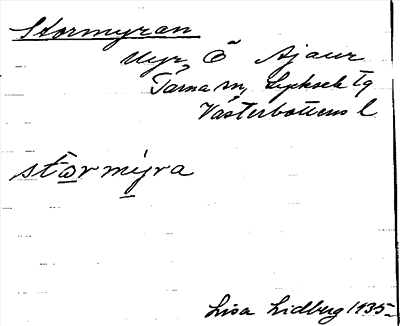 Stormyran
Myr, Ö Ajaur
Tärna sn, Lycksele tg
Västerbottens l.
stormyra
Lisa Lidberg 1935